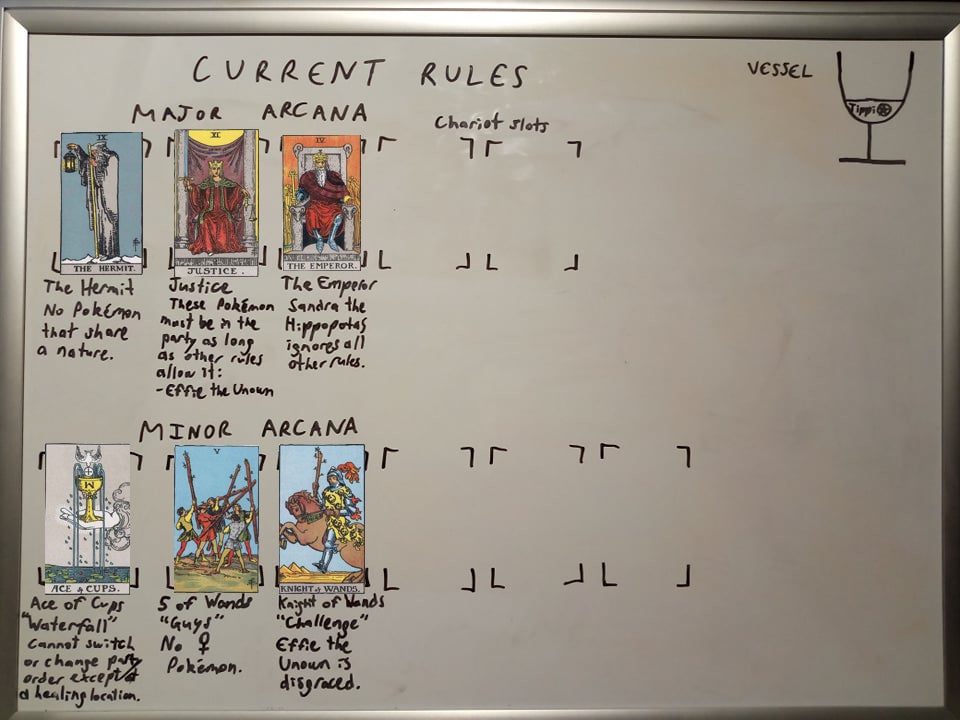 CURRENT RULES
VESSEL
Tippi
MAJOR ARCANA
Chariot slots
IX
THE HERMIT.
XI
JUSTICE.
IV
THE EMPEROR.
The Hermit
No Pokémon
that share
a nature.
Justice
These Pokémon
must be in the
party as long
as other rules
allow it:
-Effie the Unown
The Emperor
Sandra the
Hippopotas
ignores all
other rules.
MINOR ARCANA
ACE of CUPS.
V
KNIGHT of WANDS.
Ace of Cups
"Waterfall"
Cannot switch
or change party
order except at
a healing location.
5 of Wands
"Guys"
No ♀
Pokémon.
Knight of Wands
"Challenge"
Effie the
Unown is
disgraced.